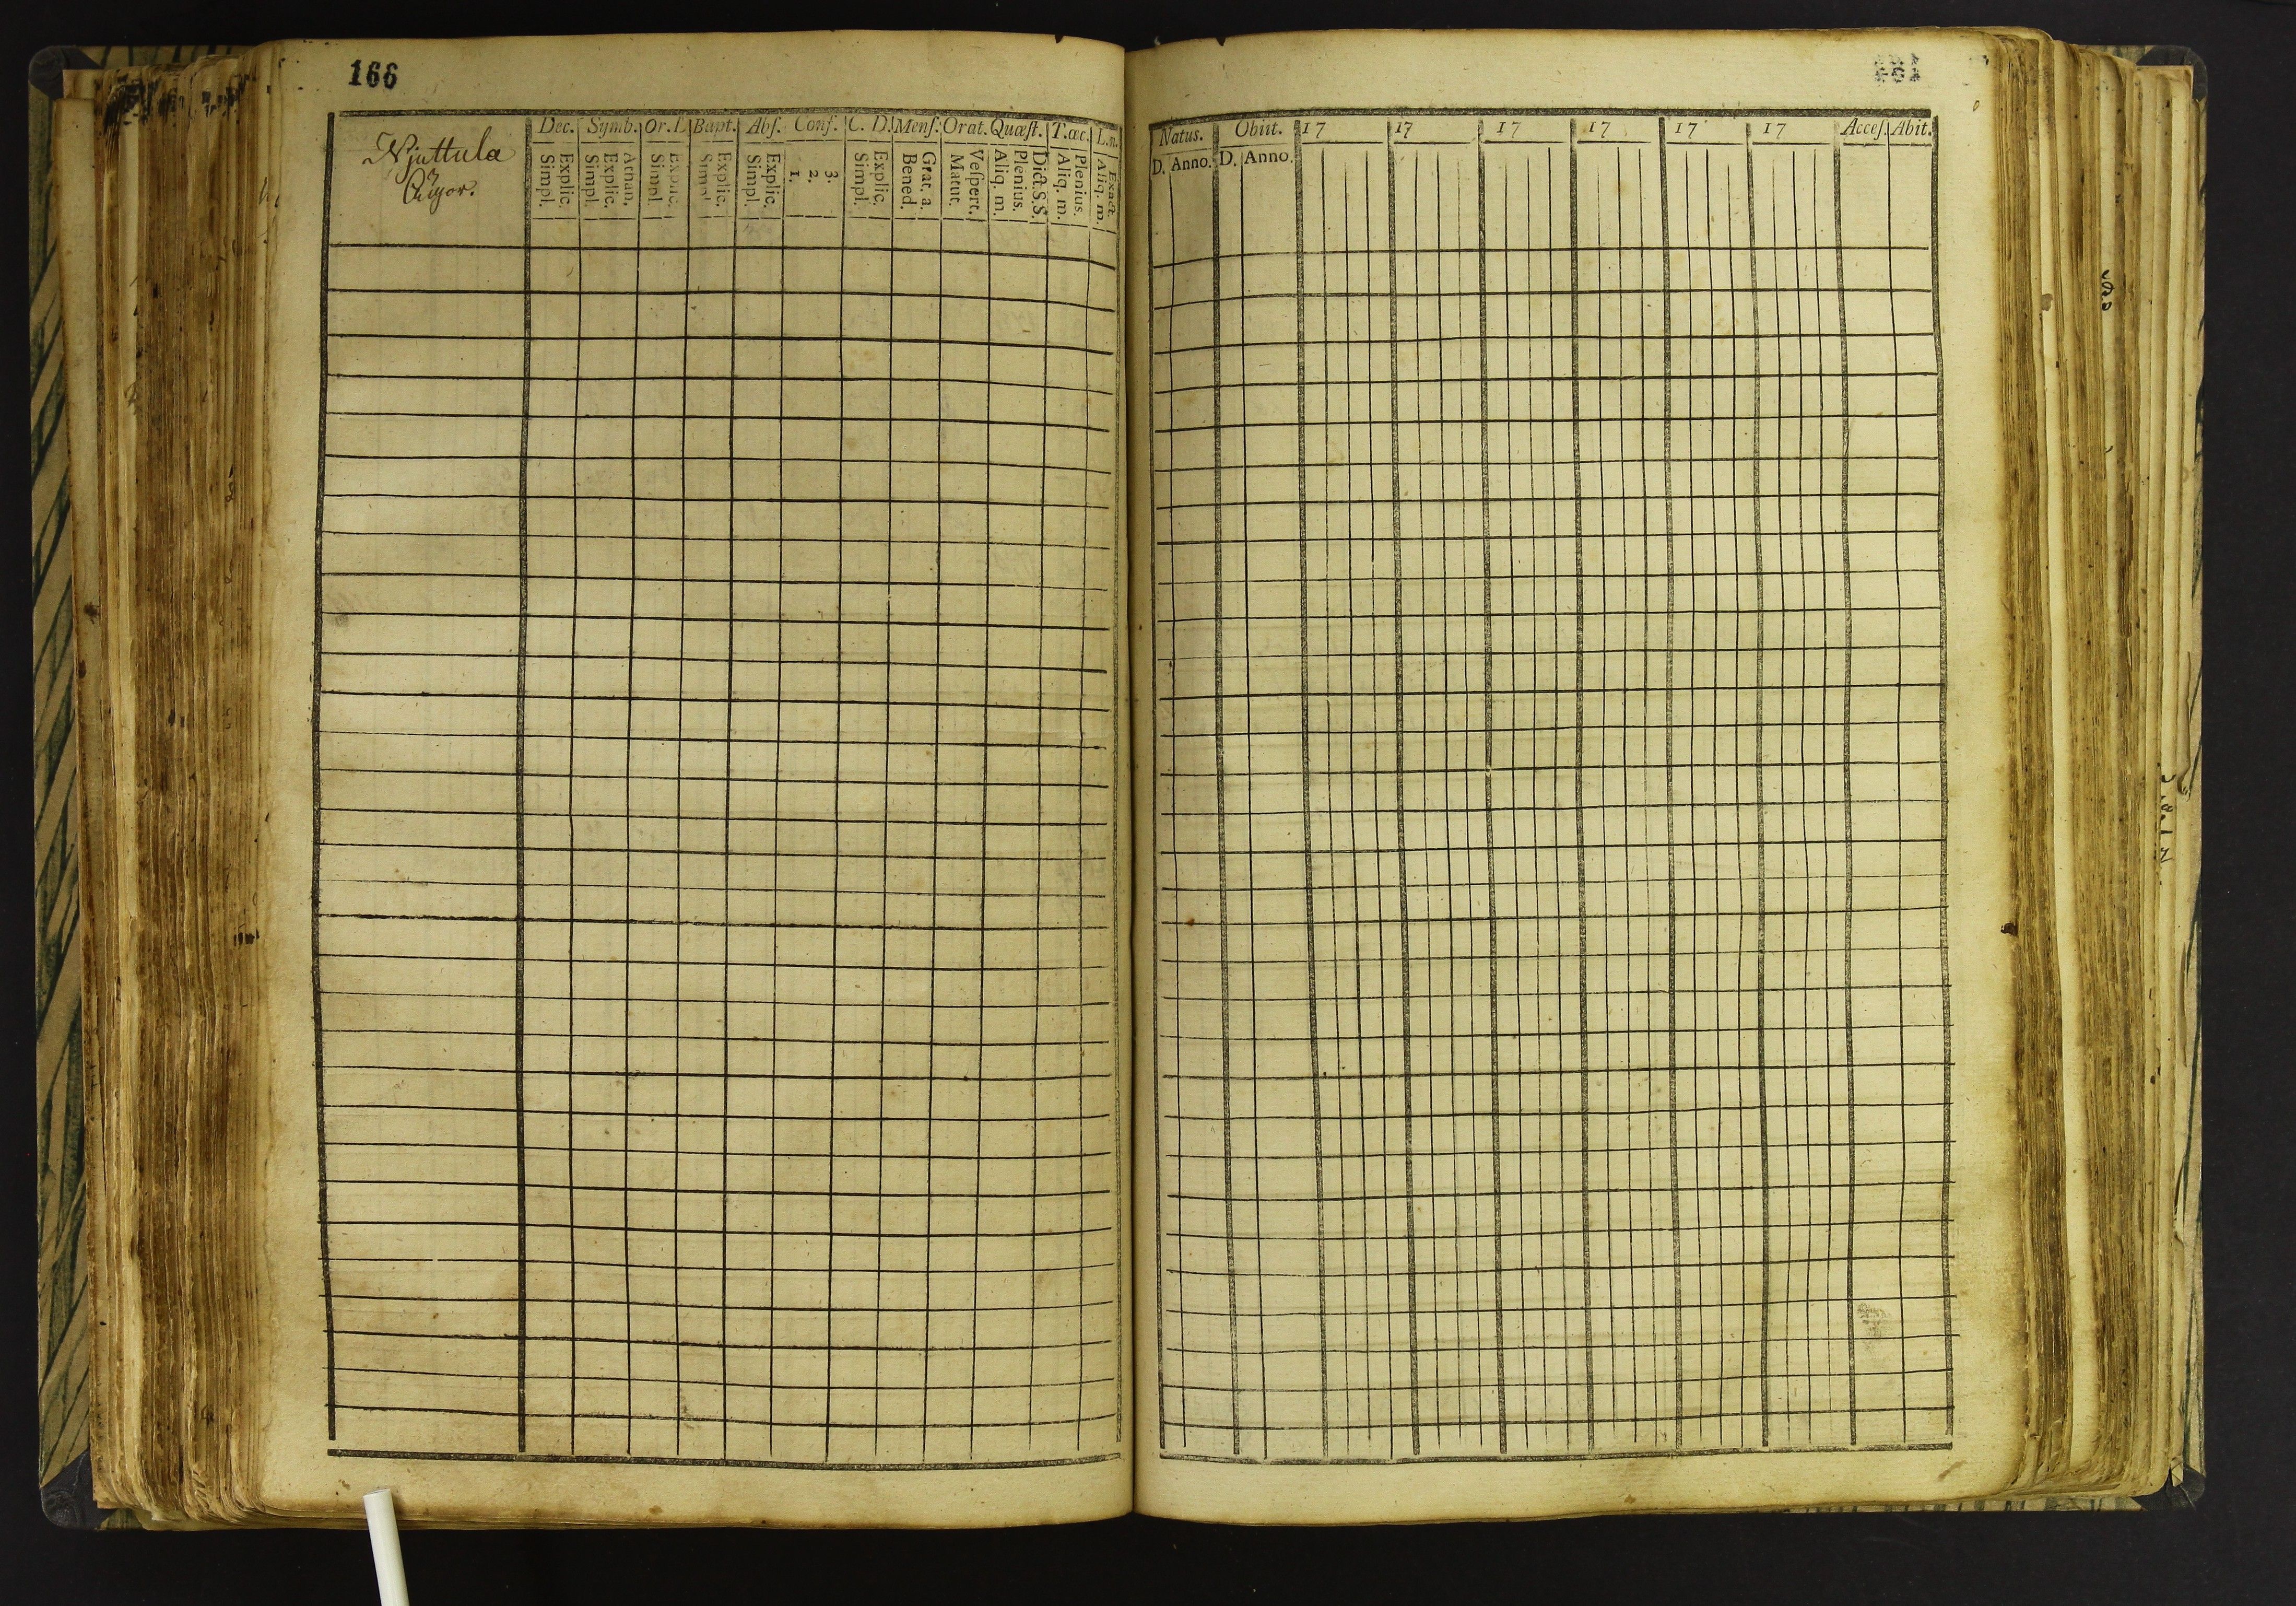 166
Dec. Symb. Or. D. Bapt. Abſ. Conf. C. D. Menſ. Orat. Quæſt. T. œc. L. n.
Njuttula
Simpl. Explic. Simpl. Explic. Athan. Simpl. Explic. Simpl. Explic. Simpl. Explic. 1. 2. 3. Simpl. Explic. Bened. Grat. a. Matut. Veſpert. Aliq. m. Plenius. Dict. S. S. Aliq. m. Plenius. Aliq. m. Exact.
Natus. Obiit. 17 17 17 17 17 17 Acceſ. Abit.
D. Anno. D. Anno.